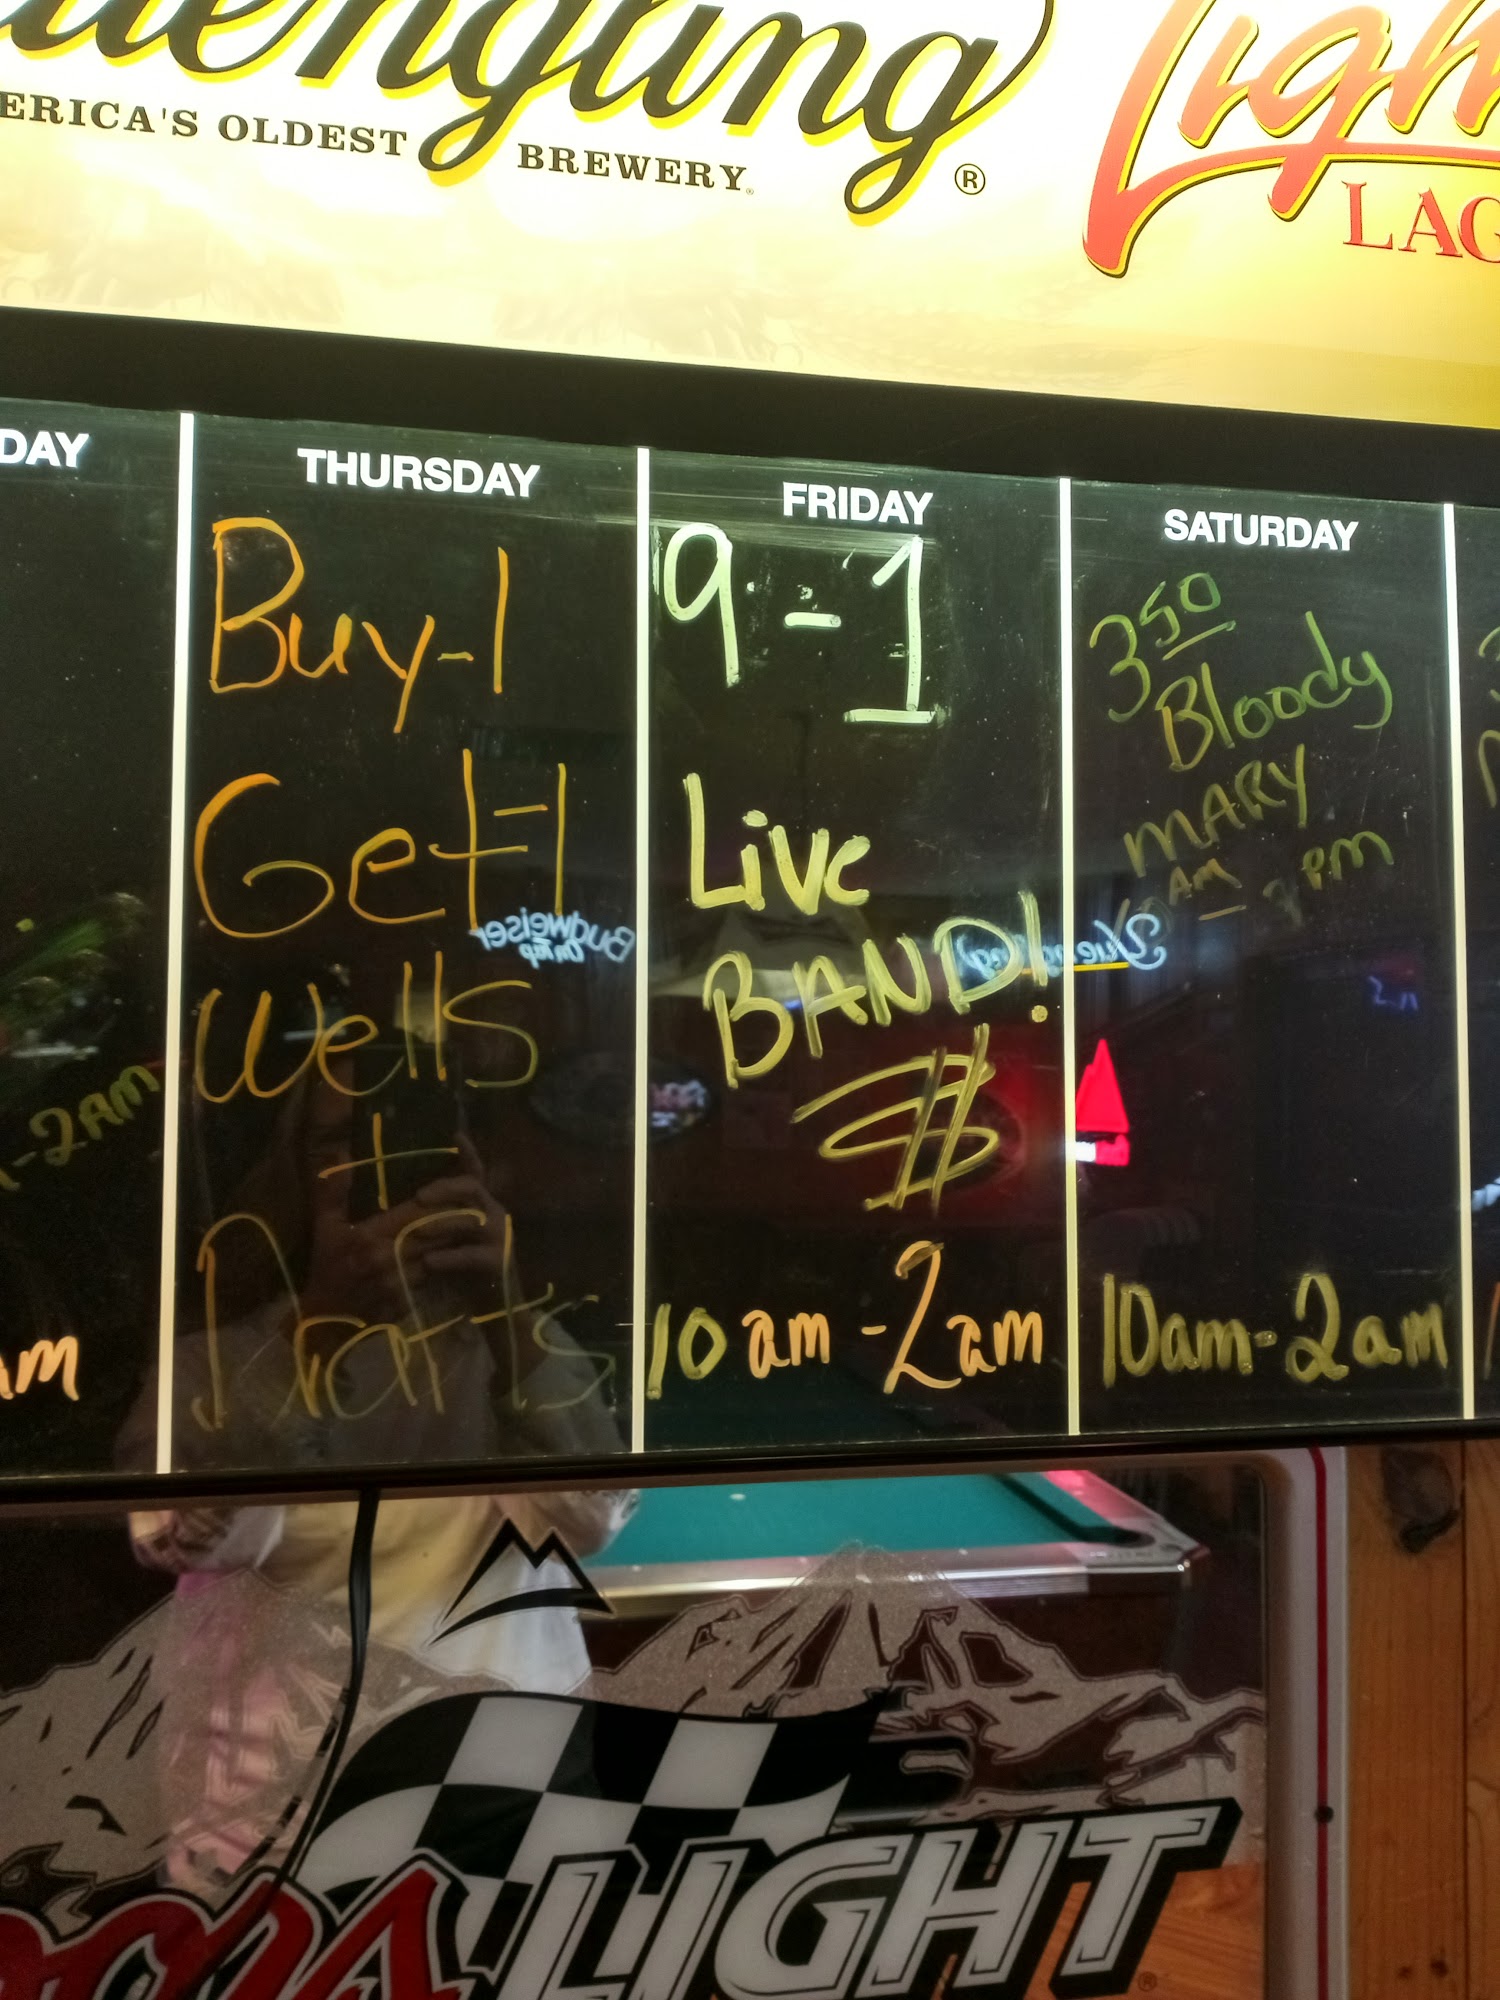 uengling®
ERICA'S OLDEST BREWERY
Ligh
LAG
DAY
-2AM
am
THURSDAY
Buy-1
Get-1
Wells
+
Drafts
FRIDAY
9-1
Live
BAND!
$
10am-2am
SATURDAY
3 50
Bloody
MARY
AM - PM
10am-2am
Budweiser
On Tap
Yuengling
LIGHT